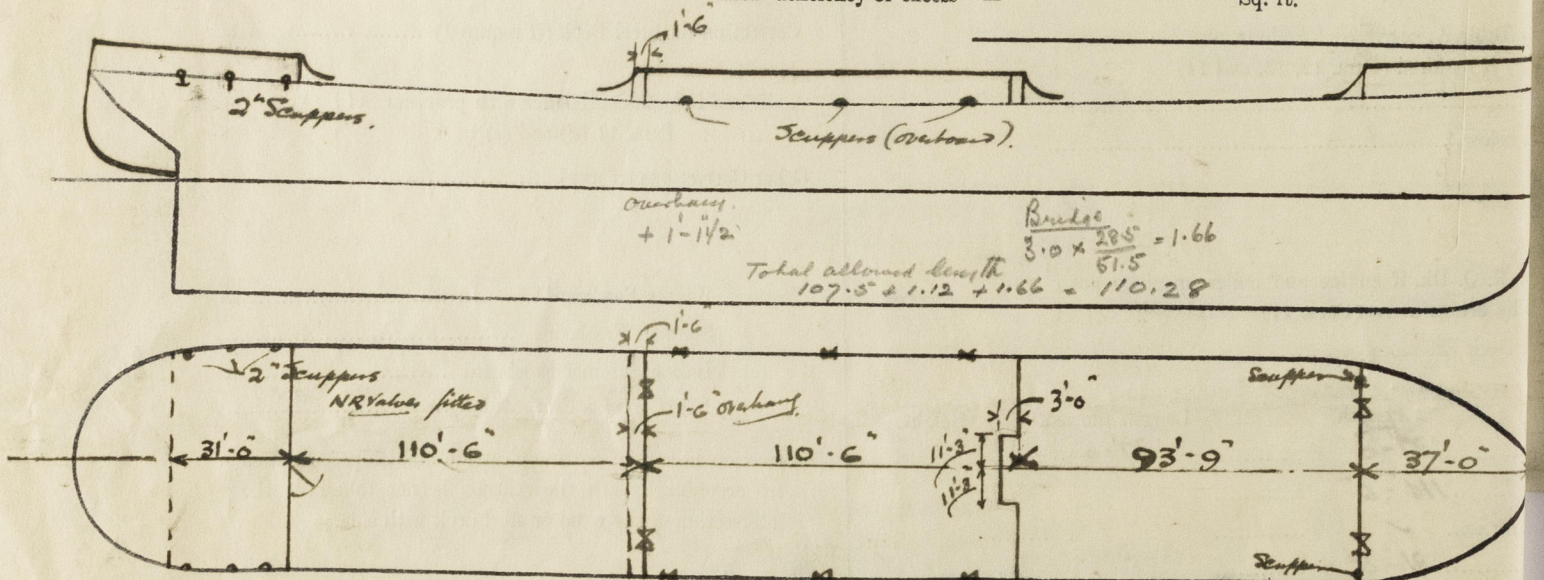 deficiency or excess =
Sq. ft.
1'-6"
2" Scuppers.
Scuppers (overboard).
Overhang.
+ 1'-1 1/2"
Bridge
3.0 x 28.5/51.5 = 1.66
Total allowed length
107.5 + 1.12 + 1.66 = 110.28
1'-6"
2" Scuppers
NR Valves fitted
1'-6" overhang.
3'-0"
Scupper
31'-0"
110'-6"
110'-6"
11'-3"
11'-3"
93'-9"
37'-0"
Scupper